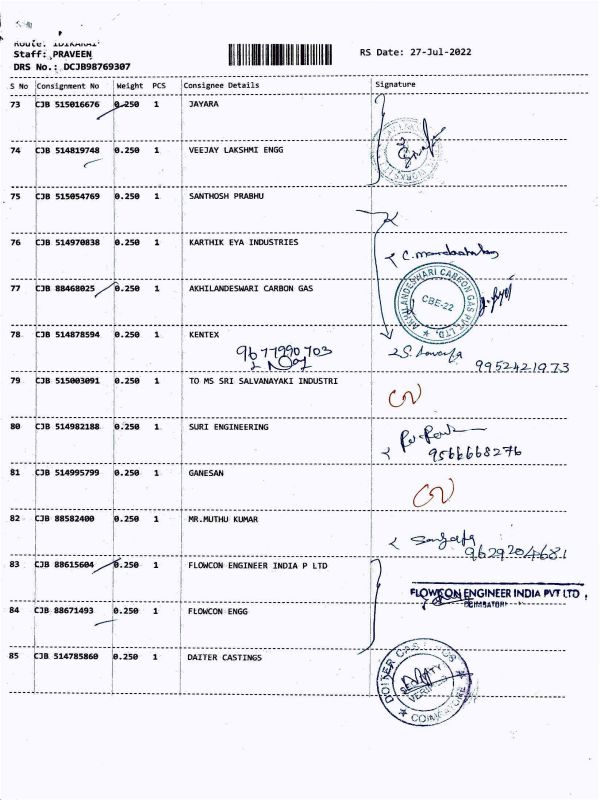 Route: IDIKARAI
Staff: PRAVEEN
DRS No.: DCJB98769307
RS Date: 27-Jul-2022
S No Consignment No Weight PCS Consignee Details Signature
73 CJB 515016676 0.250 1 JAYARA
74 CJB 514819748 0.250 1 VEEJAY LAKSHMI ENGG
75 CJB 515054769 0.250 1 SANTHOSH PRABHU
76 CJB 514970838 0.250 1 KARTHIK EYA INDUSTRIES
77 CJB 88468025 0.250 1 AKHILANDESWARI CARBON GAS
AKHILANDESWARI CARBON GAS PVT. LTD.
CBE-22
78 CJB 514878594 0.250 1 KENTEX
9677990703
9952421973
79 CJB 515003091 0.250 1 TO MS SRI SALVANAYAKI INDUSTRI
80 CJB 514982188 0.250 1 SURI ENGINEERING
9566668276
81 CJB 514995799 0.250 1 GANESAN
82 CJB 88582400 0.250 1 MR.MUTHU KUMAR
9629204681
83 CJB 88615604 0.250 1 FLOWCON ENGINEER INDIA P LTD
FLOWCON ENGINEER INDIA PVT LTD
COIMBATORE
84 CJB 88671493 0.250 1 FLOWCON ENGG
85 CJB 514785860 0.250 1 DAITER CASTINGS
DOITER CASTINGS
SECURITY
VERIFIED
COIMBATORE